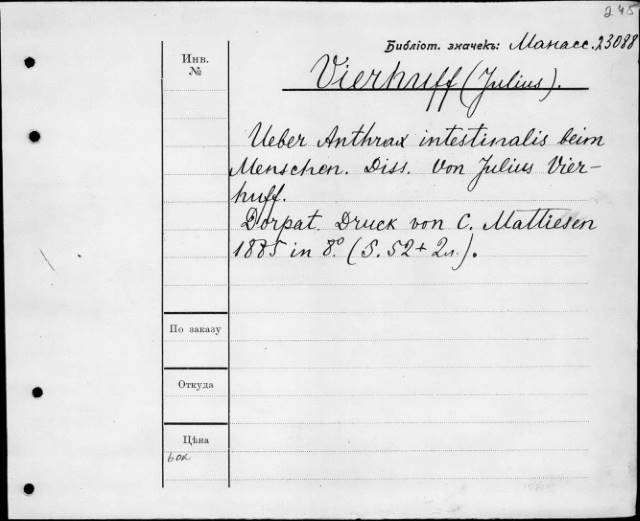 245
Библіот. значекъ: Манасс. 23088
Инв.
№
Vierhuff (Julius).
Ueber Anthrax intestinalis beim
Menschen. Diss. von Julius Vier-
huff.
Dorpat. Druck von C. Mattiesen
1885 in 8º. (S. 52 + 2л.).
По заказу
Откуда
Цѣна